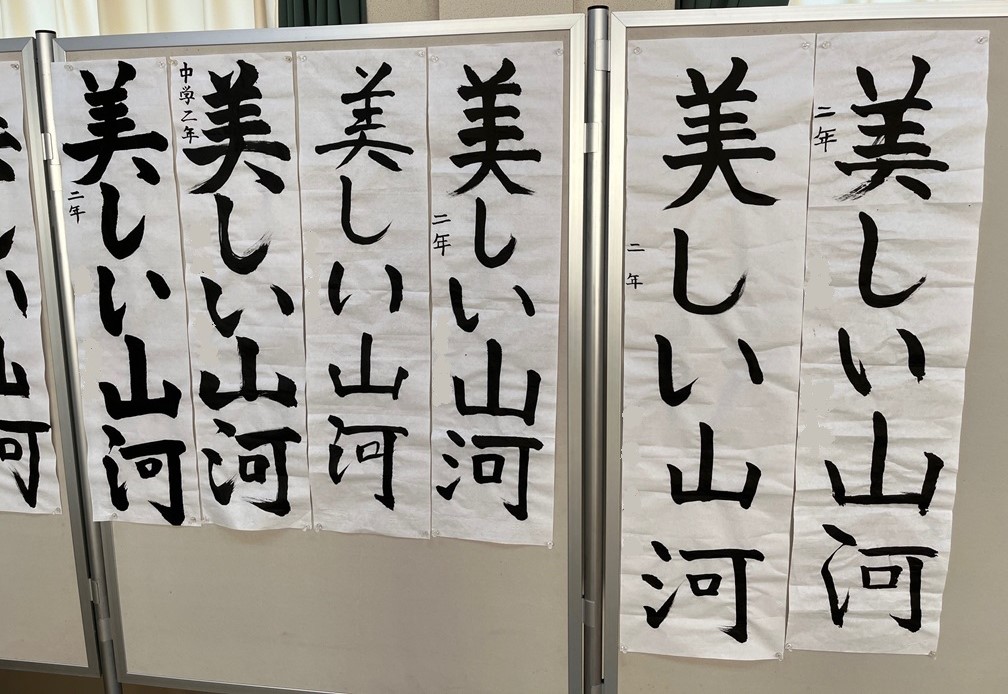 美しい山河
二年
美しい山河
二年
美しい山河
二年
美しい山河
美しい山河
中学二年
美しい山河
二年